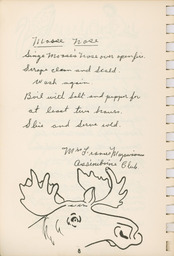 Moose Nose
Singe Moose's Nose over open fire.
Scrape clean and scald.
Wash again
Boil with salt and pepper for
at least two hours.
Slice and serve cold.
Mrs
Assiniboine Club
8